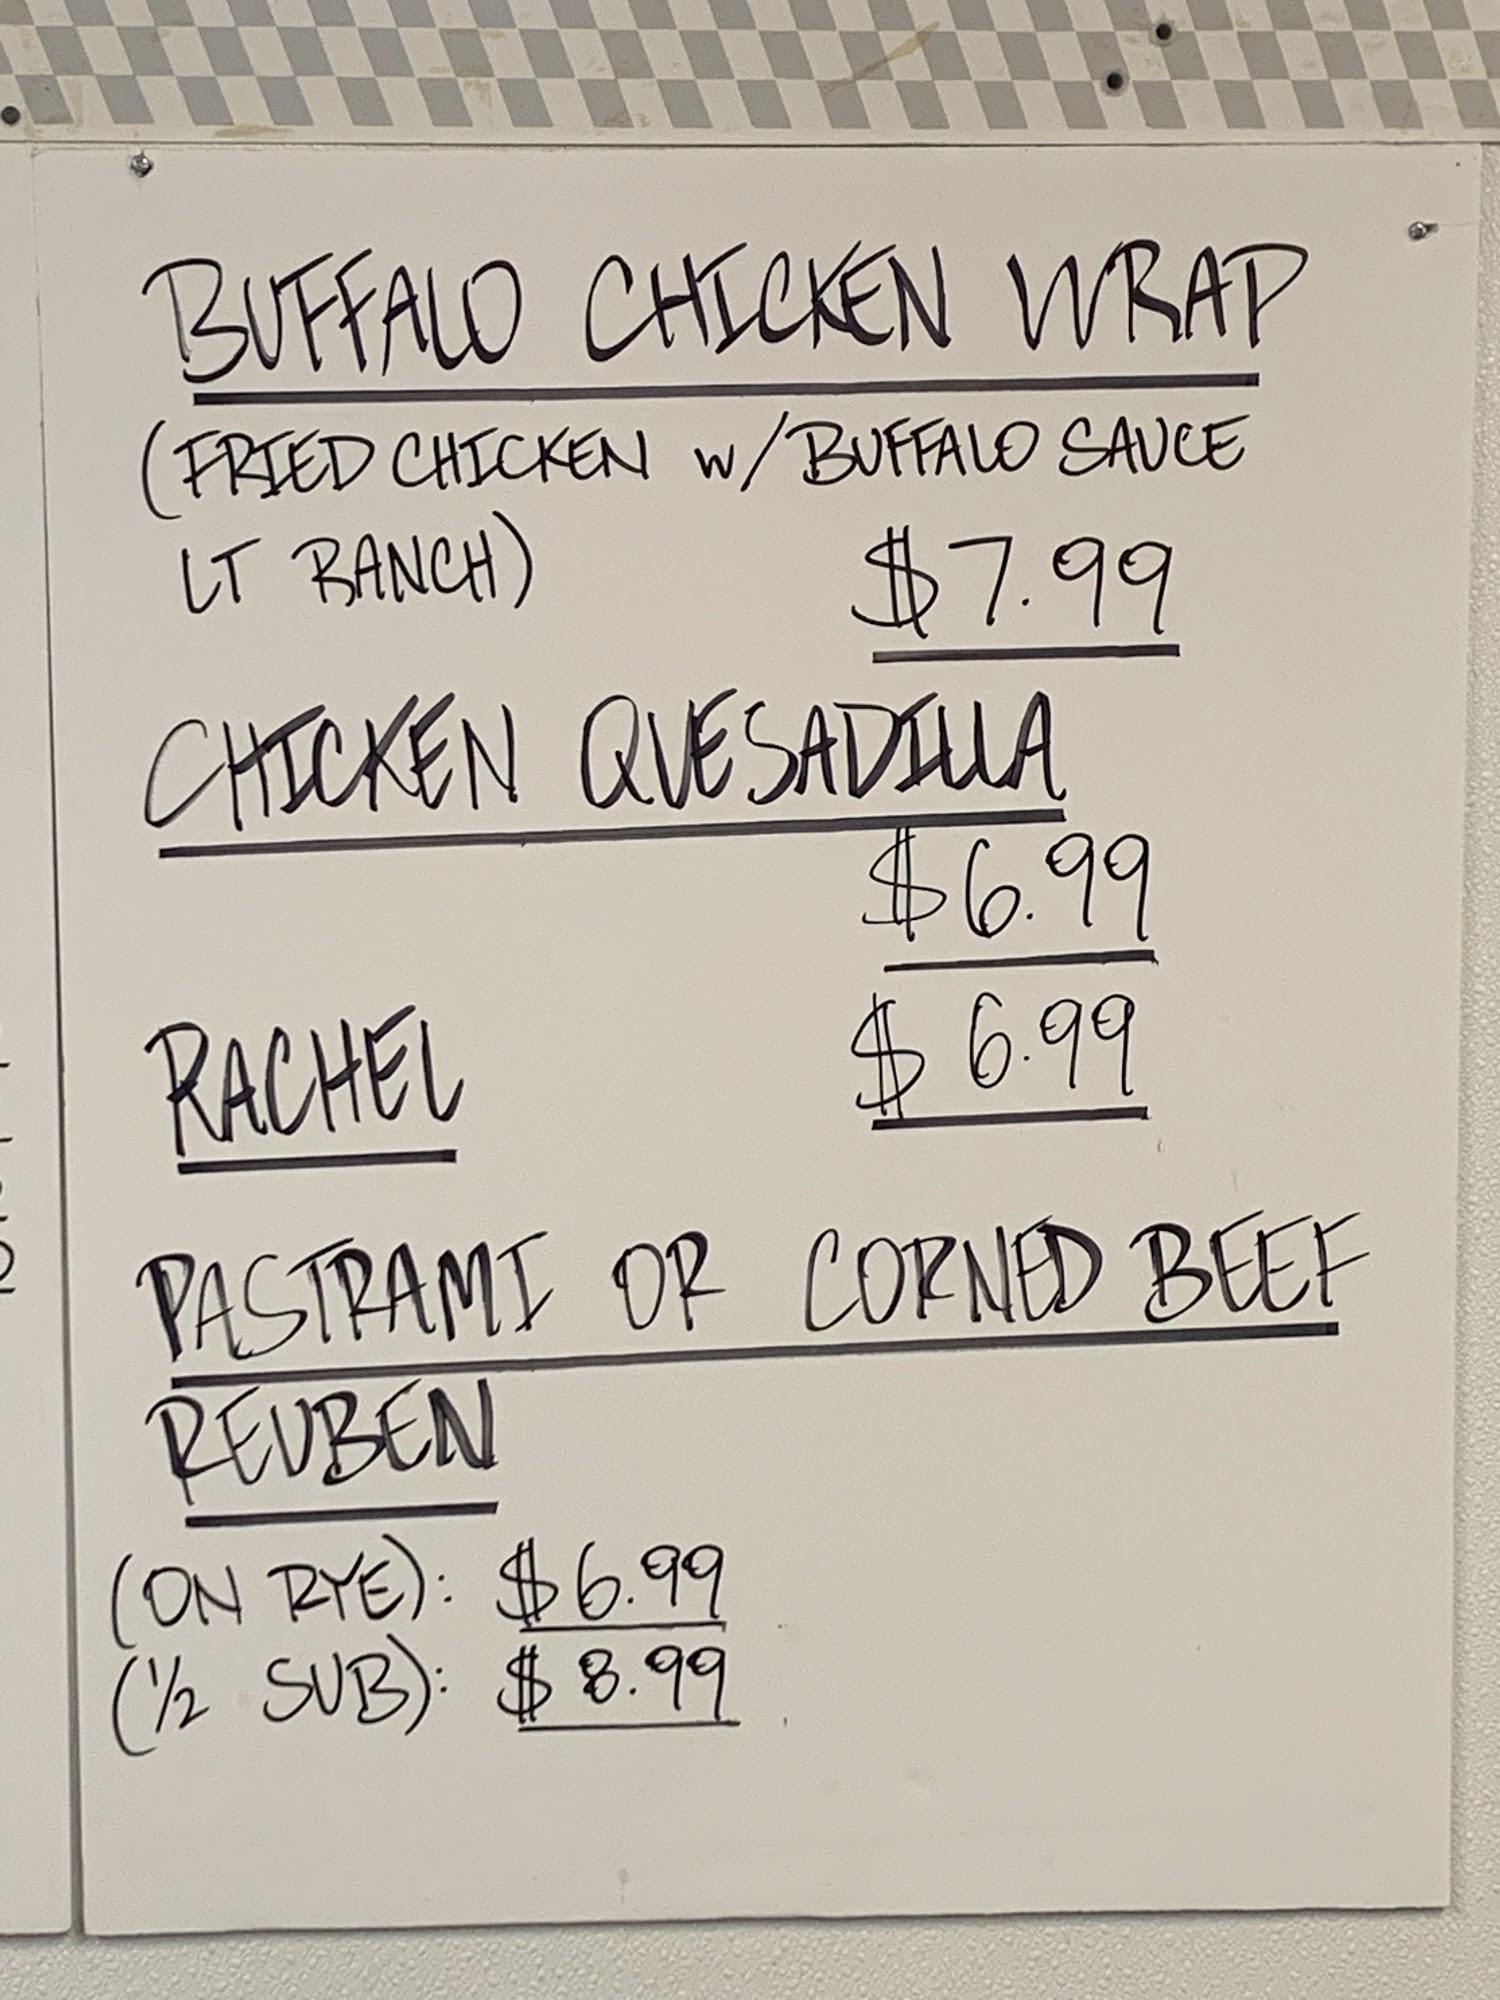 BUFFALO CHICKEN WRAP
(FRIED CHICKEN w/BUFFALO SAUCE
LT RANCH) $7.99
CHICKEN QUESADILLA
$6.99
RACHEL $6.99
PASTRAMI OR CORNED BEEF
REUBEN
(ON RYE): $6.99
(1/2 SUB): $8.99